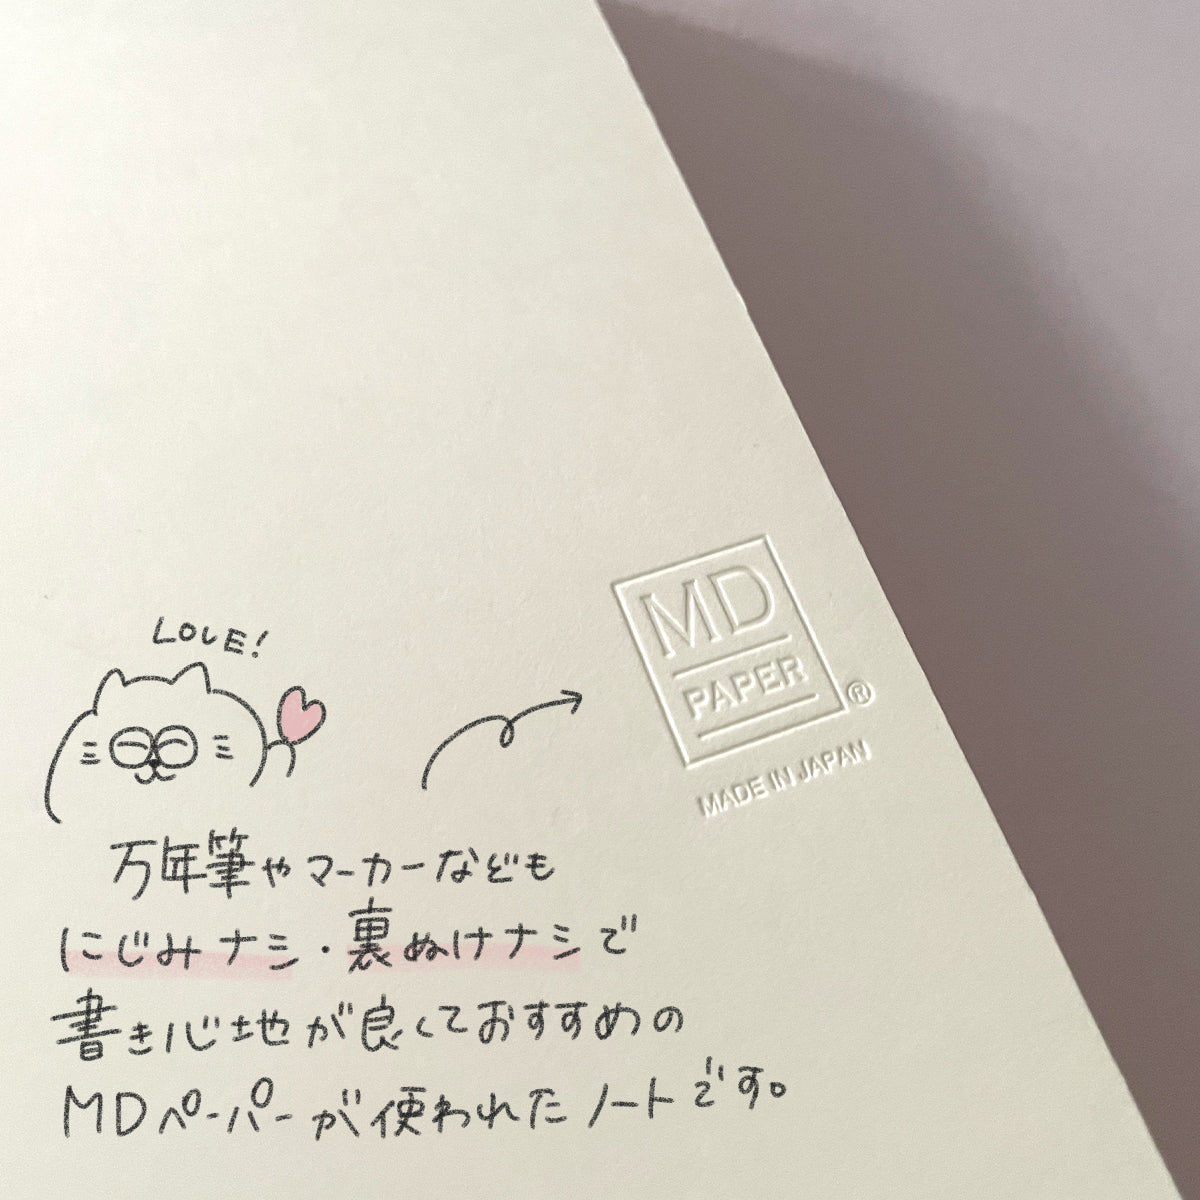 LOVE!
MD
PAPER
®
MADE IN JAPAN
万年筆やマーカーなども
にじみナシ・裏ぬけナシで
書き心地が良くておすすめの
MDペーパーが使われたノートです。